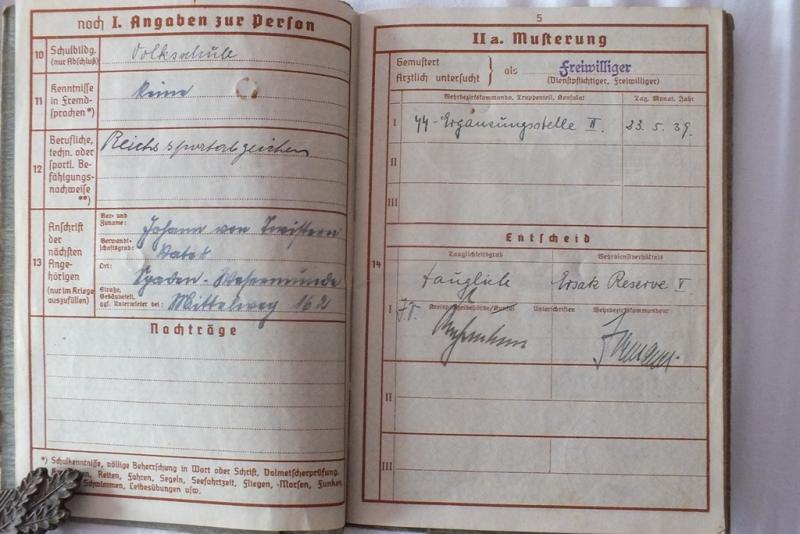 noch I. Angaben zur Person
10 Schulbildg. (nur Abschluß) Volksschule
11 Kenntnisse in Fremd-sprachen *) Keine
12 Berufliche, techn. oder sportl. Be-fähigungs-nachweise **) Reichssportabzeichen
13 Anschrift der nächsten Ange-hörigen (nur im Kriege auszufüllen)
Vor- und Zuname: Johann von Twistern
Verwandt-schaftsgrad: Vater
Ort: Spaden - Wesermünde
Straße, Gebäudeteil, ggf. Untermieter bei: Mittelweg 162
Nachträge
*) Schulkenntnisse, völlige Beherrschung in Wort oder Schrift, Dolmetscherprüfung.
Reiten, Fahren, Segeln, Seefahrtzeit, Fliegen, Morsen, Funken,
Schwimmen, Leibesübungen usw.
5
II a. Musterung
Gemustert
Ärztlich untersucht } als Freiwilliger
(Dienstpflichtiger, Freiwilliger)
Wehrbezirkskommando, Truppenteil, Konsulat Tag, Monat, Jahr
I ϟϟ-Ergänzungsstelle II. 23.5.39.
II
III
Entscheid
14
Tauglichkeitsgrad Wehrdienstverhältnis
tauglich Ersatz Reserve V
I Unterschriften Wehrbezirkskommandeur
II
III